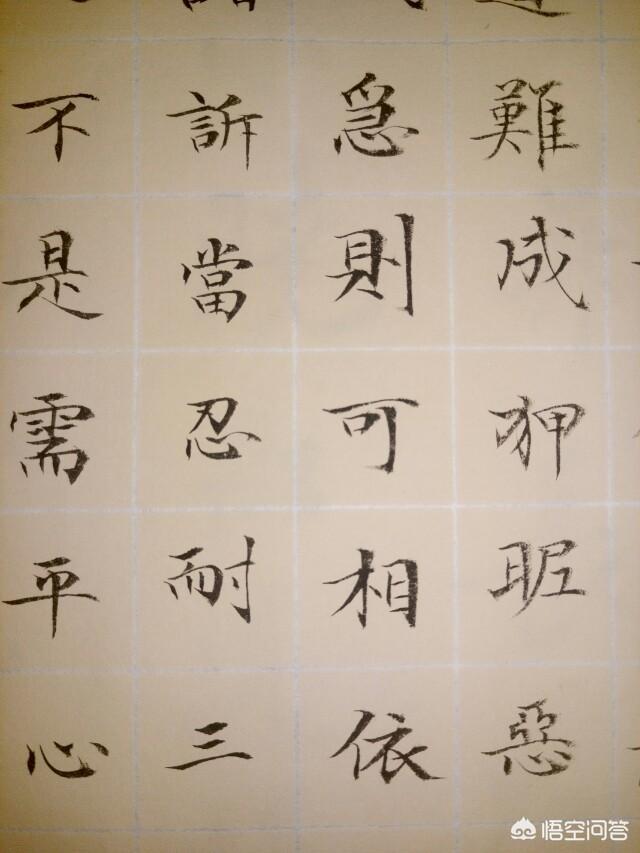 難成狎昵惡
急則可相依
訴當忍耐三
不是需平心
悟空问答